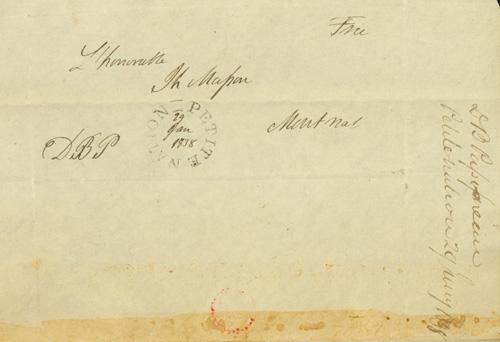 Free
L'honorable
Jh Masson
Montreal
PETITE NATION
29
Jan
1838
D.B.P
D B Papineau
Petite Nation 29 Janv 1838